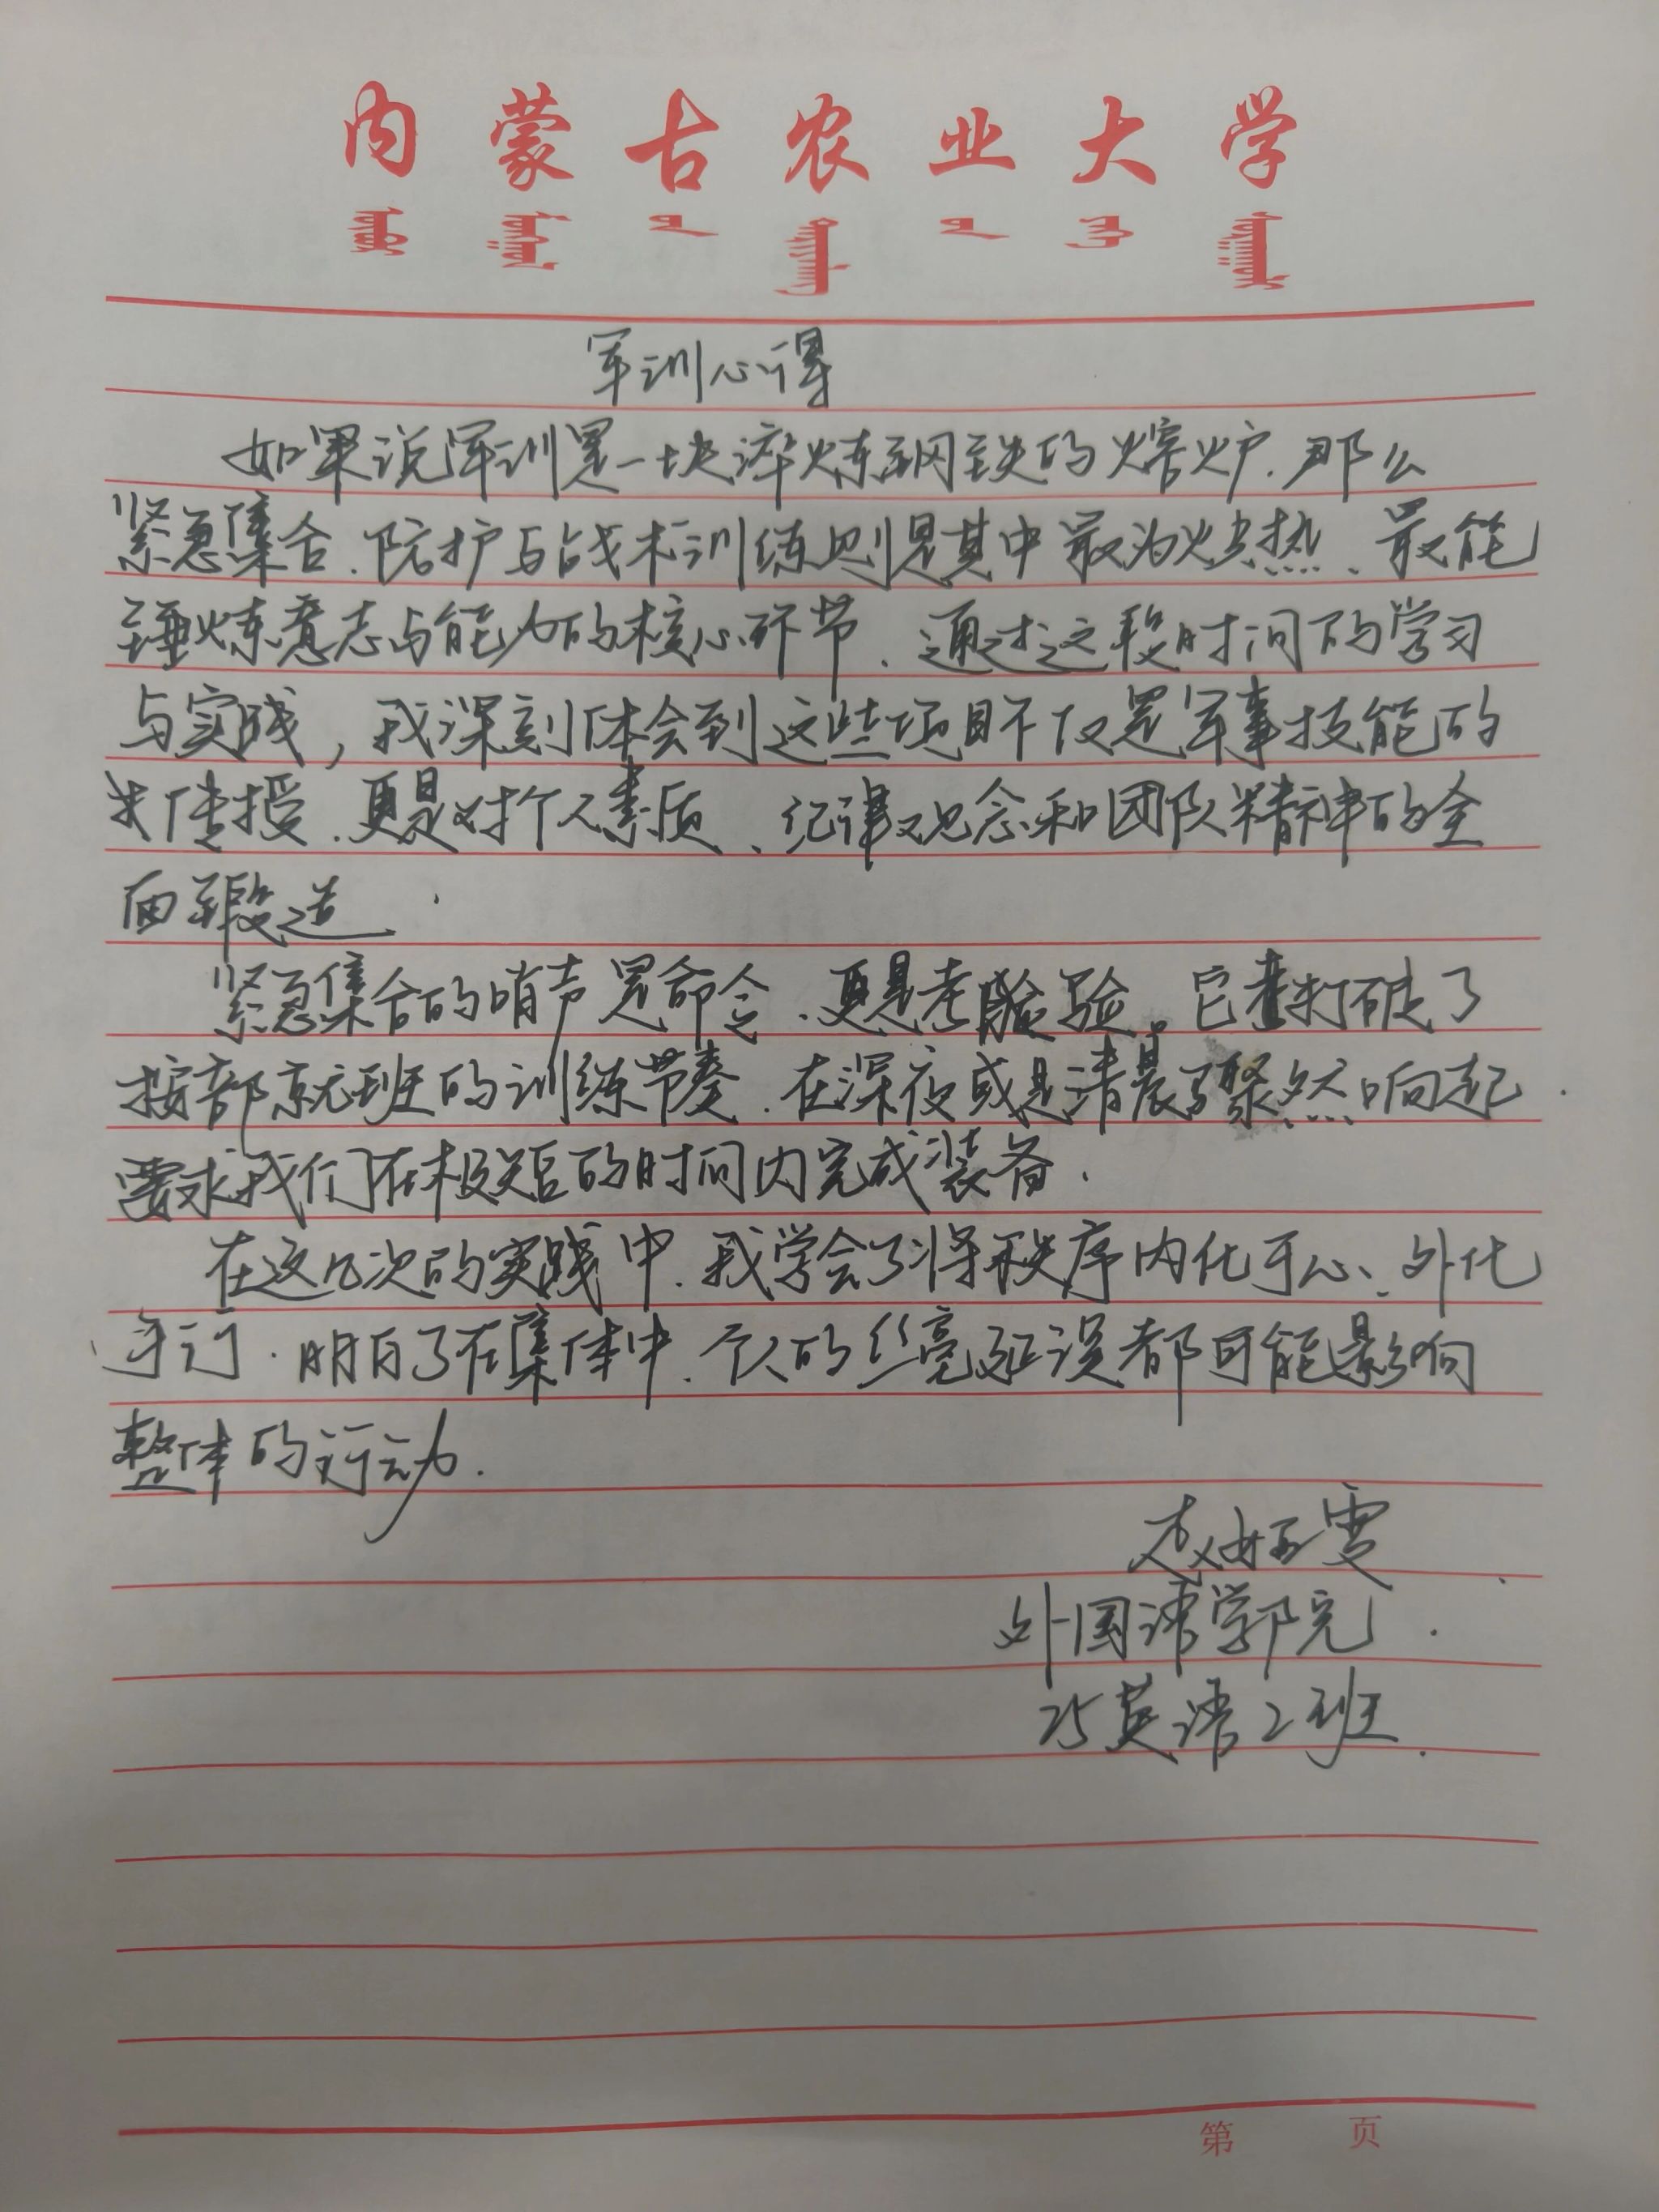 内蒙古农业大学
军训心得
如果说军训是一块淬炼钢铁的熔炉.那么
紧急集合.防护与战术训练则是其中最为火热、最能
锤炼意志与能力的核心环节.通过这段时间的学习
与实践,我深刻体会到这些项目不仅是军事技能的
传授.更是对个人素质、纪律观念和团队精神的全
面锻造.
紧急集合的哨声是命令.更是考验。它打破了
按部就班的训练节奏.在深夜或是清晨骤然响起.
要求我们在极短的时间内完成装备.
在这几次的实践中.我学会了将秩序内化于心、外化
于行.明白了在集体中.个人的丝毫延误都可能影响
整体的行动.
赵雯
外国语学院.
25英语2班.
第 页